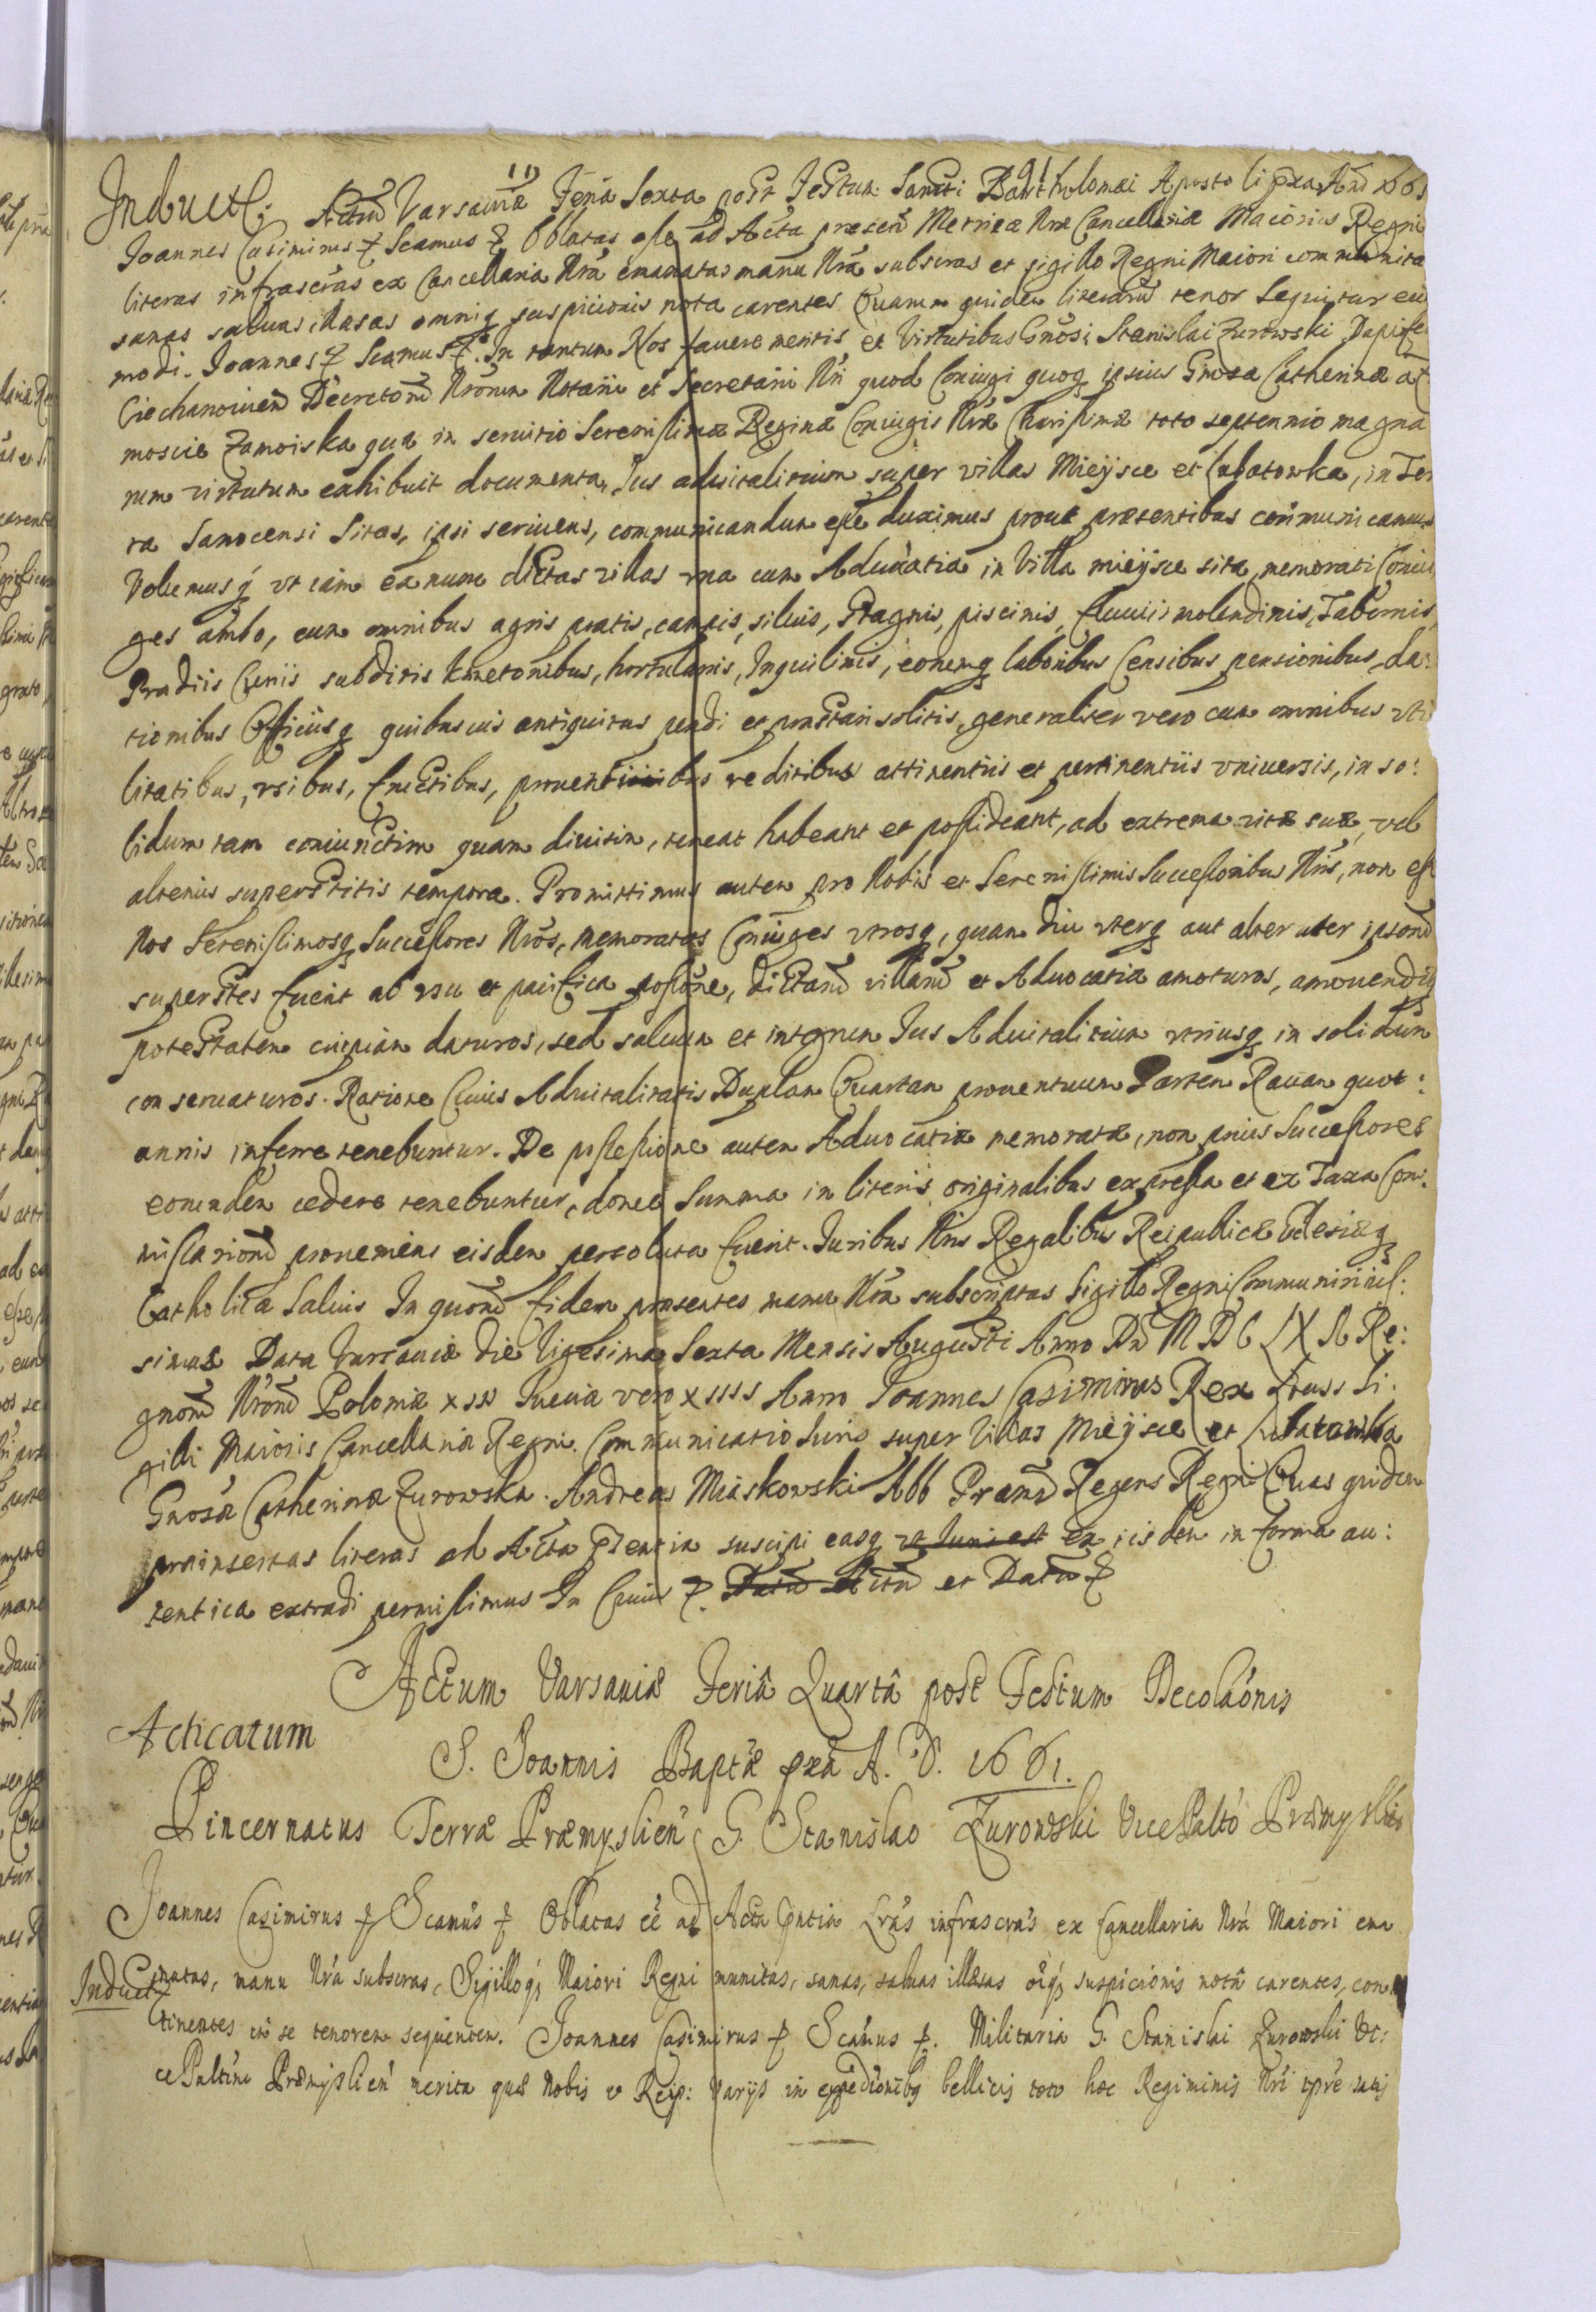 Induct:
Actũ Varsaviæ Feria Sexta post Festum Sancti Barthulomæi Apostoli pxa And 1661
Joannes Casimirus & Scamus & Oblatas esse ad Acta præsen Metricæ Nræ Cancellariæ Maioris Regni
literas infrascras ex Cancellaria Nra emanatas manu Nra subscras et sigillo Regni Maiori communita
sanas saluas illasas omniq suspicionis nota carentes Quarum quidem literarũ tenor Sequitur eius
modi. Joannes & Scamus &. In tantum Nos fauere meritis et Virtutibus Gnosi Stanislai Zurowski Dapife
Ciechanouien Decretorũ Nrorum Notarii et Secretarii Nri quod Coniugi quoq ipsius Gnosa Catherinæ a
moscie Zamoiska qua in seruitio Serenissimæ Reginæ Coniugis Nræ Charissimæ toto septennio magna
rum virtutum exhibuit documenta, Jus aduitalitium super villas Mieÿsce et Lubatowka, in Ter
ra Sanocensi Sitas, ipsi seruiens, communicandum esse duximus prout præsentibus communicamus
Volumusq vt iam ex nunc dictas villas vna cum Aduocatia in Villa mieÿsce sita memorati Coniu
ges ambo, cum omnibus agris pratis, campis, siluis, Stagnis, piscinis, fluuiis molendinis, Tabernis,
Prædiis Ceteris subditis kmetonibus, hortulanis, Inquilinis, eorumq laboribus Censibus pensionibus, da:
tionibus Officiisq quibusuis antiquitus pendi et præstari solitis, generaliter vero cum omnibus vti
litatibus, vsibus, fructibus, prouentibus reditibus attinentiis et pertinentiis vniuersis, in so:
lidum tam coniunctim quam diuisim, teneat habeant et possideant, ad extrema vitæ suæ, vel
alterius superstitis tempora. Promittimus autem pro Nobis et Serenissimis Successoribus Nris, non esse
Nos Serenissimosq Successores Nros, memoratos Coniuges vtrosq, quam diu vterq aut alteruter ipsorũ
superstes fuerit ab vsu et pacifica possõne, dictarũ villarũ et Aduocatiæ amoturos, amouendiq
potestatem cuipiam daturos, sed saluum et integrum Jus Aduitalitium vtriusq in solidum
conseruaturos. Ratione Cuius Aduitalitatis Duplam Quartam prouentuum Partem Rauam quot:
annis inferre tenebuntur. De possessione autem Aduocatiæ memoratæ, non prius Successores
eorundem cedere tenebuntur, donec Summa in literis originalibus expressa et ex Taxa Com:
missariorũ proueniens eisdem persoluta fuerit. Juribus Nris Regalibus Reipublicæ Eclesiæq
Catholicæ Saluis In quorũ fidem præsentes manu Nra subscriptas Sigillo Regni Communiri ius:
simus Data Varsauiæ die Vigesima Sexta Mensis Augusti Anno Dn MDCLXI Re:
gnorũ Nrorũ Poloniæ XIII Sueciæ vero XIIII Anno Joannes Casimirus Rex Locus Si:
gilli Maioris Cancellariæ Regni. Communicatio Juris super Villas Mieÿsce et Lubatowka
Gnosæ Catherinæ Zurowska. Andreas Miaskowski Abb Præm Regens Regni Quas quidem
præinsertas literas ad Acta pñentia suscipi easq vt Juris est ex iisdem in forma au:
tentica extradi permisimus In Cuius &. Datũ Actũ et Datũ &
Actum Varsauiæ Feriâ Quartâ post Festum Decolaõnis
Acticatum
S. Joannis Baptæ pxa A. D. 1661.
Pincernatus Terræ Præmyslien G. Stanislao Zurowski Vice Palto Præmyslien
Joannes Casimirus & Scamus & Oblatas eê ad Acta pntia Lras infrascras ex Cancellaria Nra Maiori ema
Induct
natas, manu Nra subscras, Sigilloq Maiori Regni munitas, sanas, saluas illæsas oiq suspicionis notâ carentes, con
tinentes in se tenorem sequentem. Joannes Casimirus & Scamus &. Militaria G. Stanislai Zurowski Vi:
ce Paltini Præmyslien merita quæ Nobis et Reip: varijs in expedionibq bellicis toto hoc Regiminis Nri tpre satis